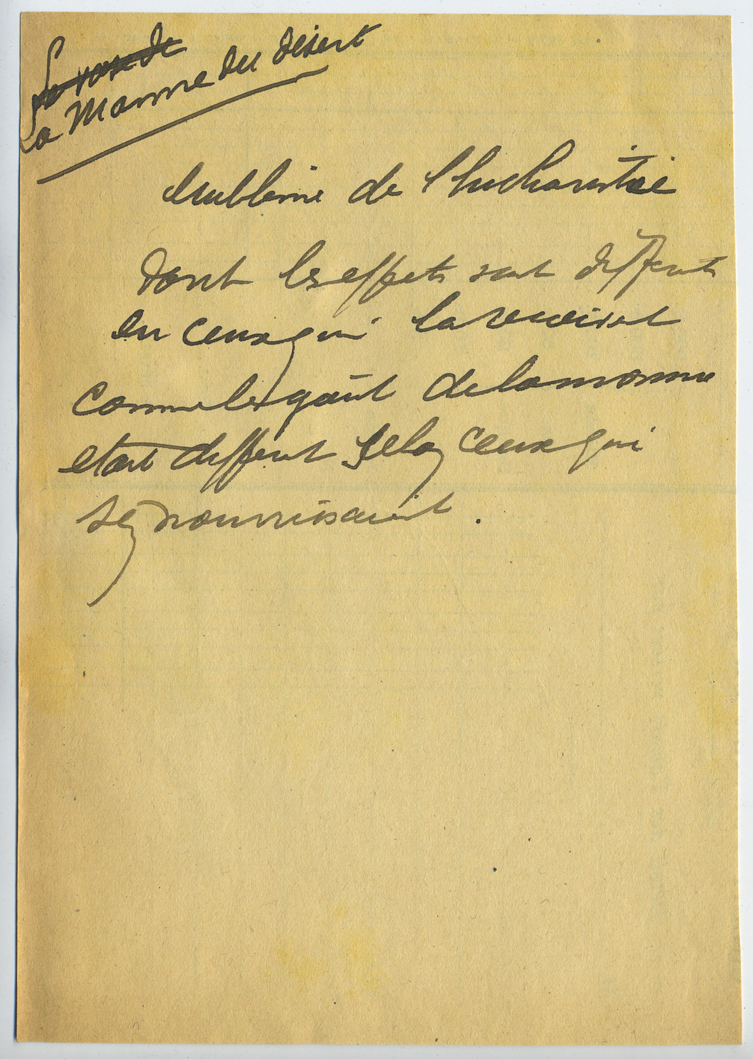 La rose de
La Manne du désert
Emblème de l'Eucharistie
dont les effets sont différents
en ceux qui la reçoivent
comme le goût de la manne
était différent selon ceux qui
s'en nourrissaient.